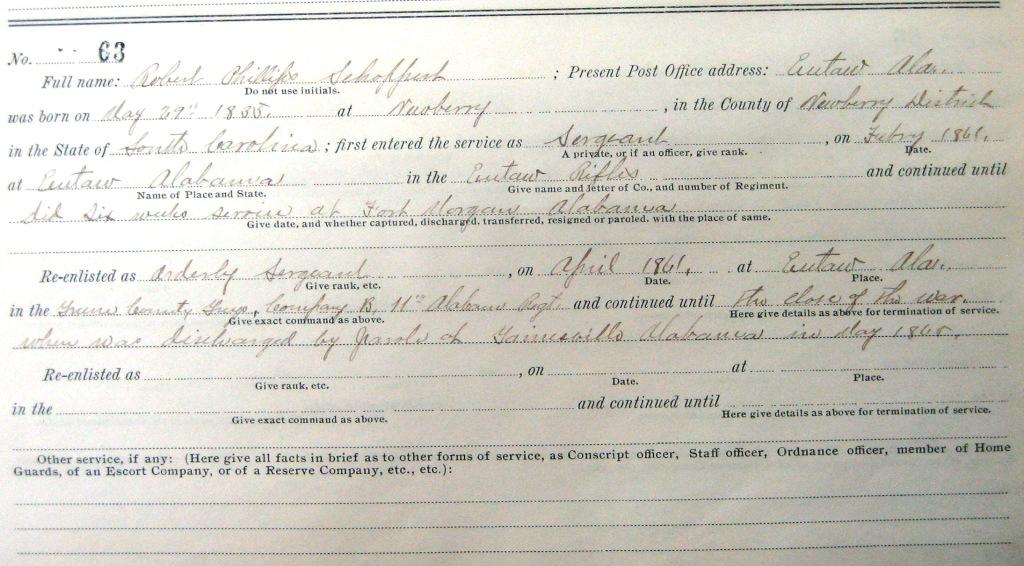 No. 63
Full name: Robert Phillips Schoppert ; Present Post Office address: Eutaw Ala.
Do not use initials.
was born on May 29th 1835. at Newberry , in the County of Newberry District
in the State of South Carolina ; first entered the service as Sergeant , on Feb'ry 1861.
A private, or if an officer, give rank. Date.
at Eutaw Alabama in the Eutaw Rifles and continued until
Name of Place and State. Give name and letter of Co., and number of Regiment.
did six weeks service at Fort Morgan Alabama
Give date, and whether captured, discharged, transferred, resigned or paroled, with the place of same.
Re-enlisted as Orderly Sergeant , on April 1861. at Eutaw Ala.
Give rank, etc. Date. Place.
in the Greene County Greys, Company B, 11th Alabama Regt. and continued until the close of the war.
Give exact command as above. Here give details as above for termination of service.
when was discharged by parole at Gainesville Alabama in May 1865.
Re-enlisted as , on at
Give rank, etc. Date. Place.
in the and continued until
Give exact command as above. Here give details as above for termination of service.
Other service, if any: (Here give all facts in brief as to other forms of service, as Conscript officer, Staff officer, Ordnance officer, member of Home
Guards, of an Escort Company, or of a Reserve Company, etc., etc.):